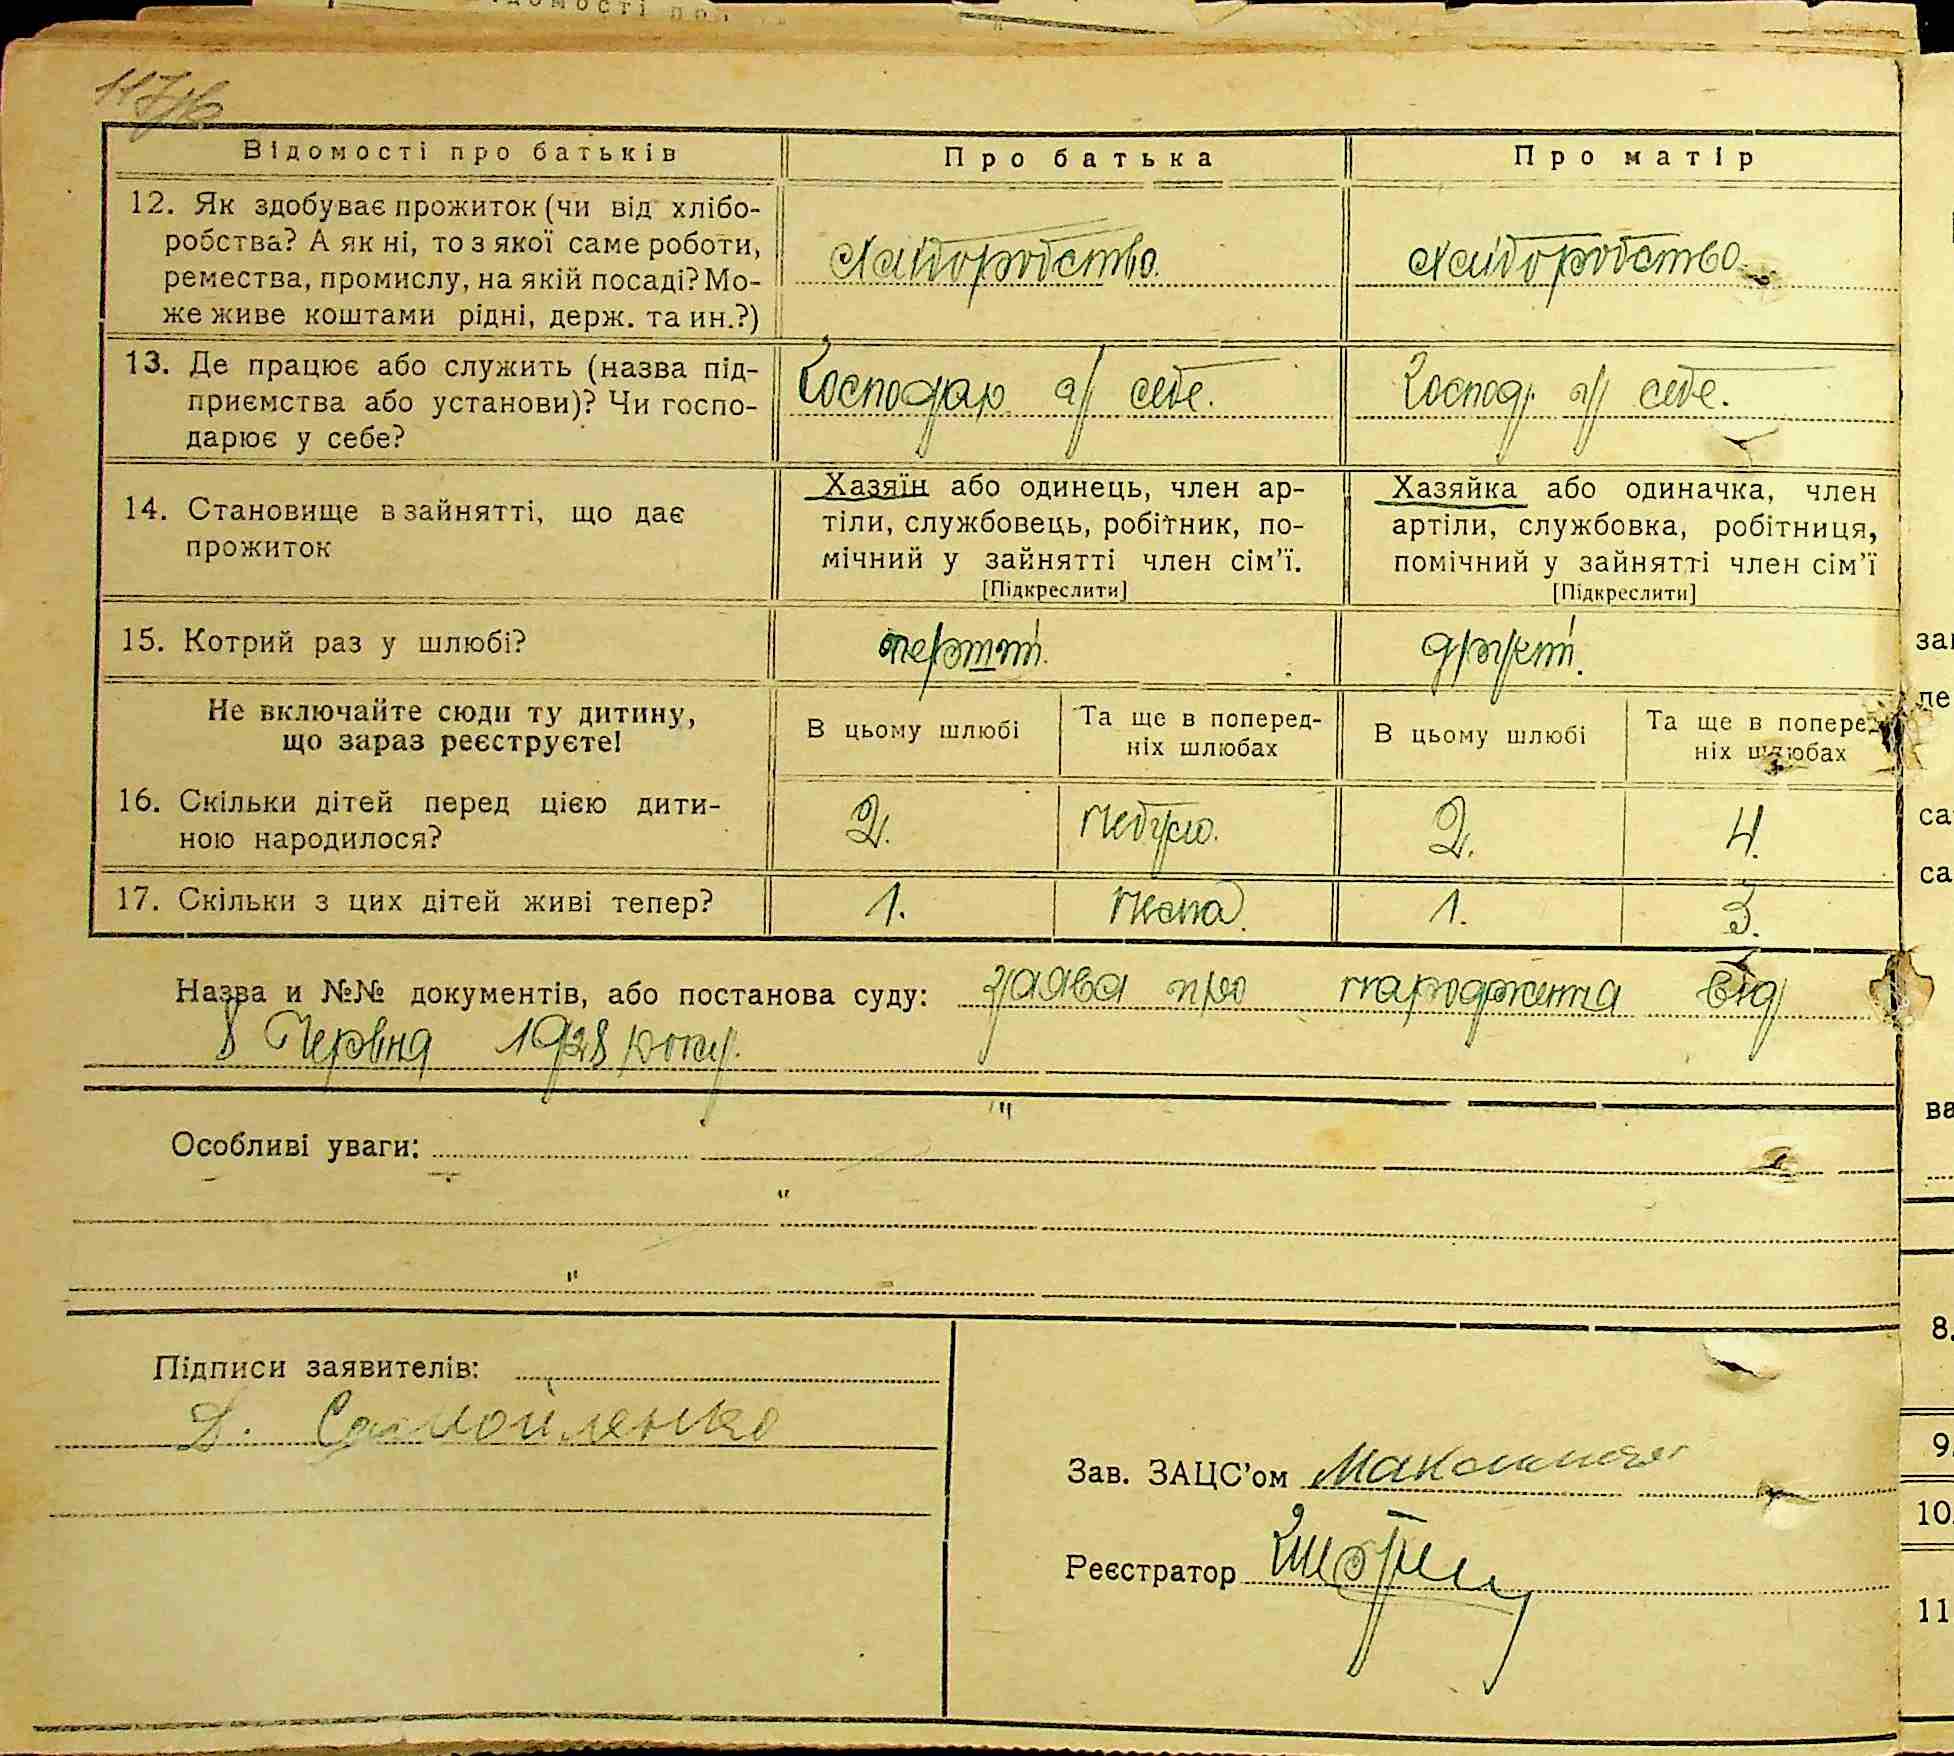 Відомості про батьків
Про батька
Про матір
12. Як здобуває прожиток (чи від хлібо-
робства? А як ні, то з якої саме роботи,
ремества, промислу, на якій посаді? Мо-
же живе коштами рідні, держ. та ин.?)
хліборобство.
хліборобство.
13. Де працює або служить (назва під-
приємства або установи)? Чи госпо-
дарює у себе?
Господар. у себе.
Господ. у себе.
14. Становище в зайнятті, що дає
прожиток
Хазяїн або одинець, член ар-
тіли, службовець, робітник, по-
мічний у зайнятті член сім'ї.
[Підкреслити]
Хазяйка або одиначка, член
артіли, службовка, робітниця,
помічний у зайнятті член сім'ї
[Підкреслити]
15. Котрий раз у шлюбі?
перший.
другий.
Не включайте сюди ту дитину,
що зараз реєструєте!
В цьому шлюбі
Та ще в поперед-
ніх шлюбах
В цьому шлюбі
Та ще в поперед-
ніх шлюбах
16. Скільки дітей перед цією дити-
ною народилося?
2.
небуло.
2.
4.
17. Скільки з цих дітей живі тепер?
1.
нема.
1.
3.
Назва и №№ документів, або постанова суду: заява про народження від
8 Червня 1928 року.
Особливі уваги:
Підписи заявителів:
Д. Самойленко
Зав. ЗАЦС'ом
Реєстратор
8.
9.
10.
11